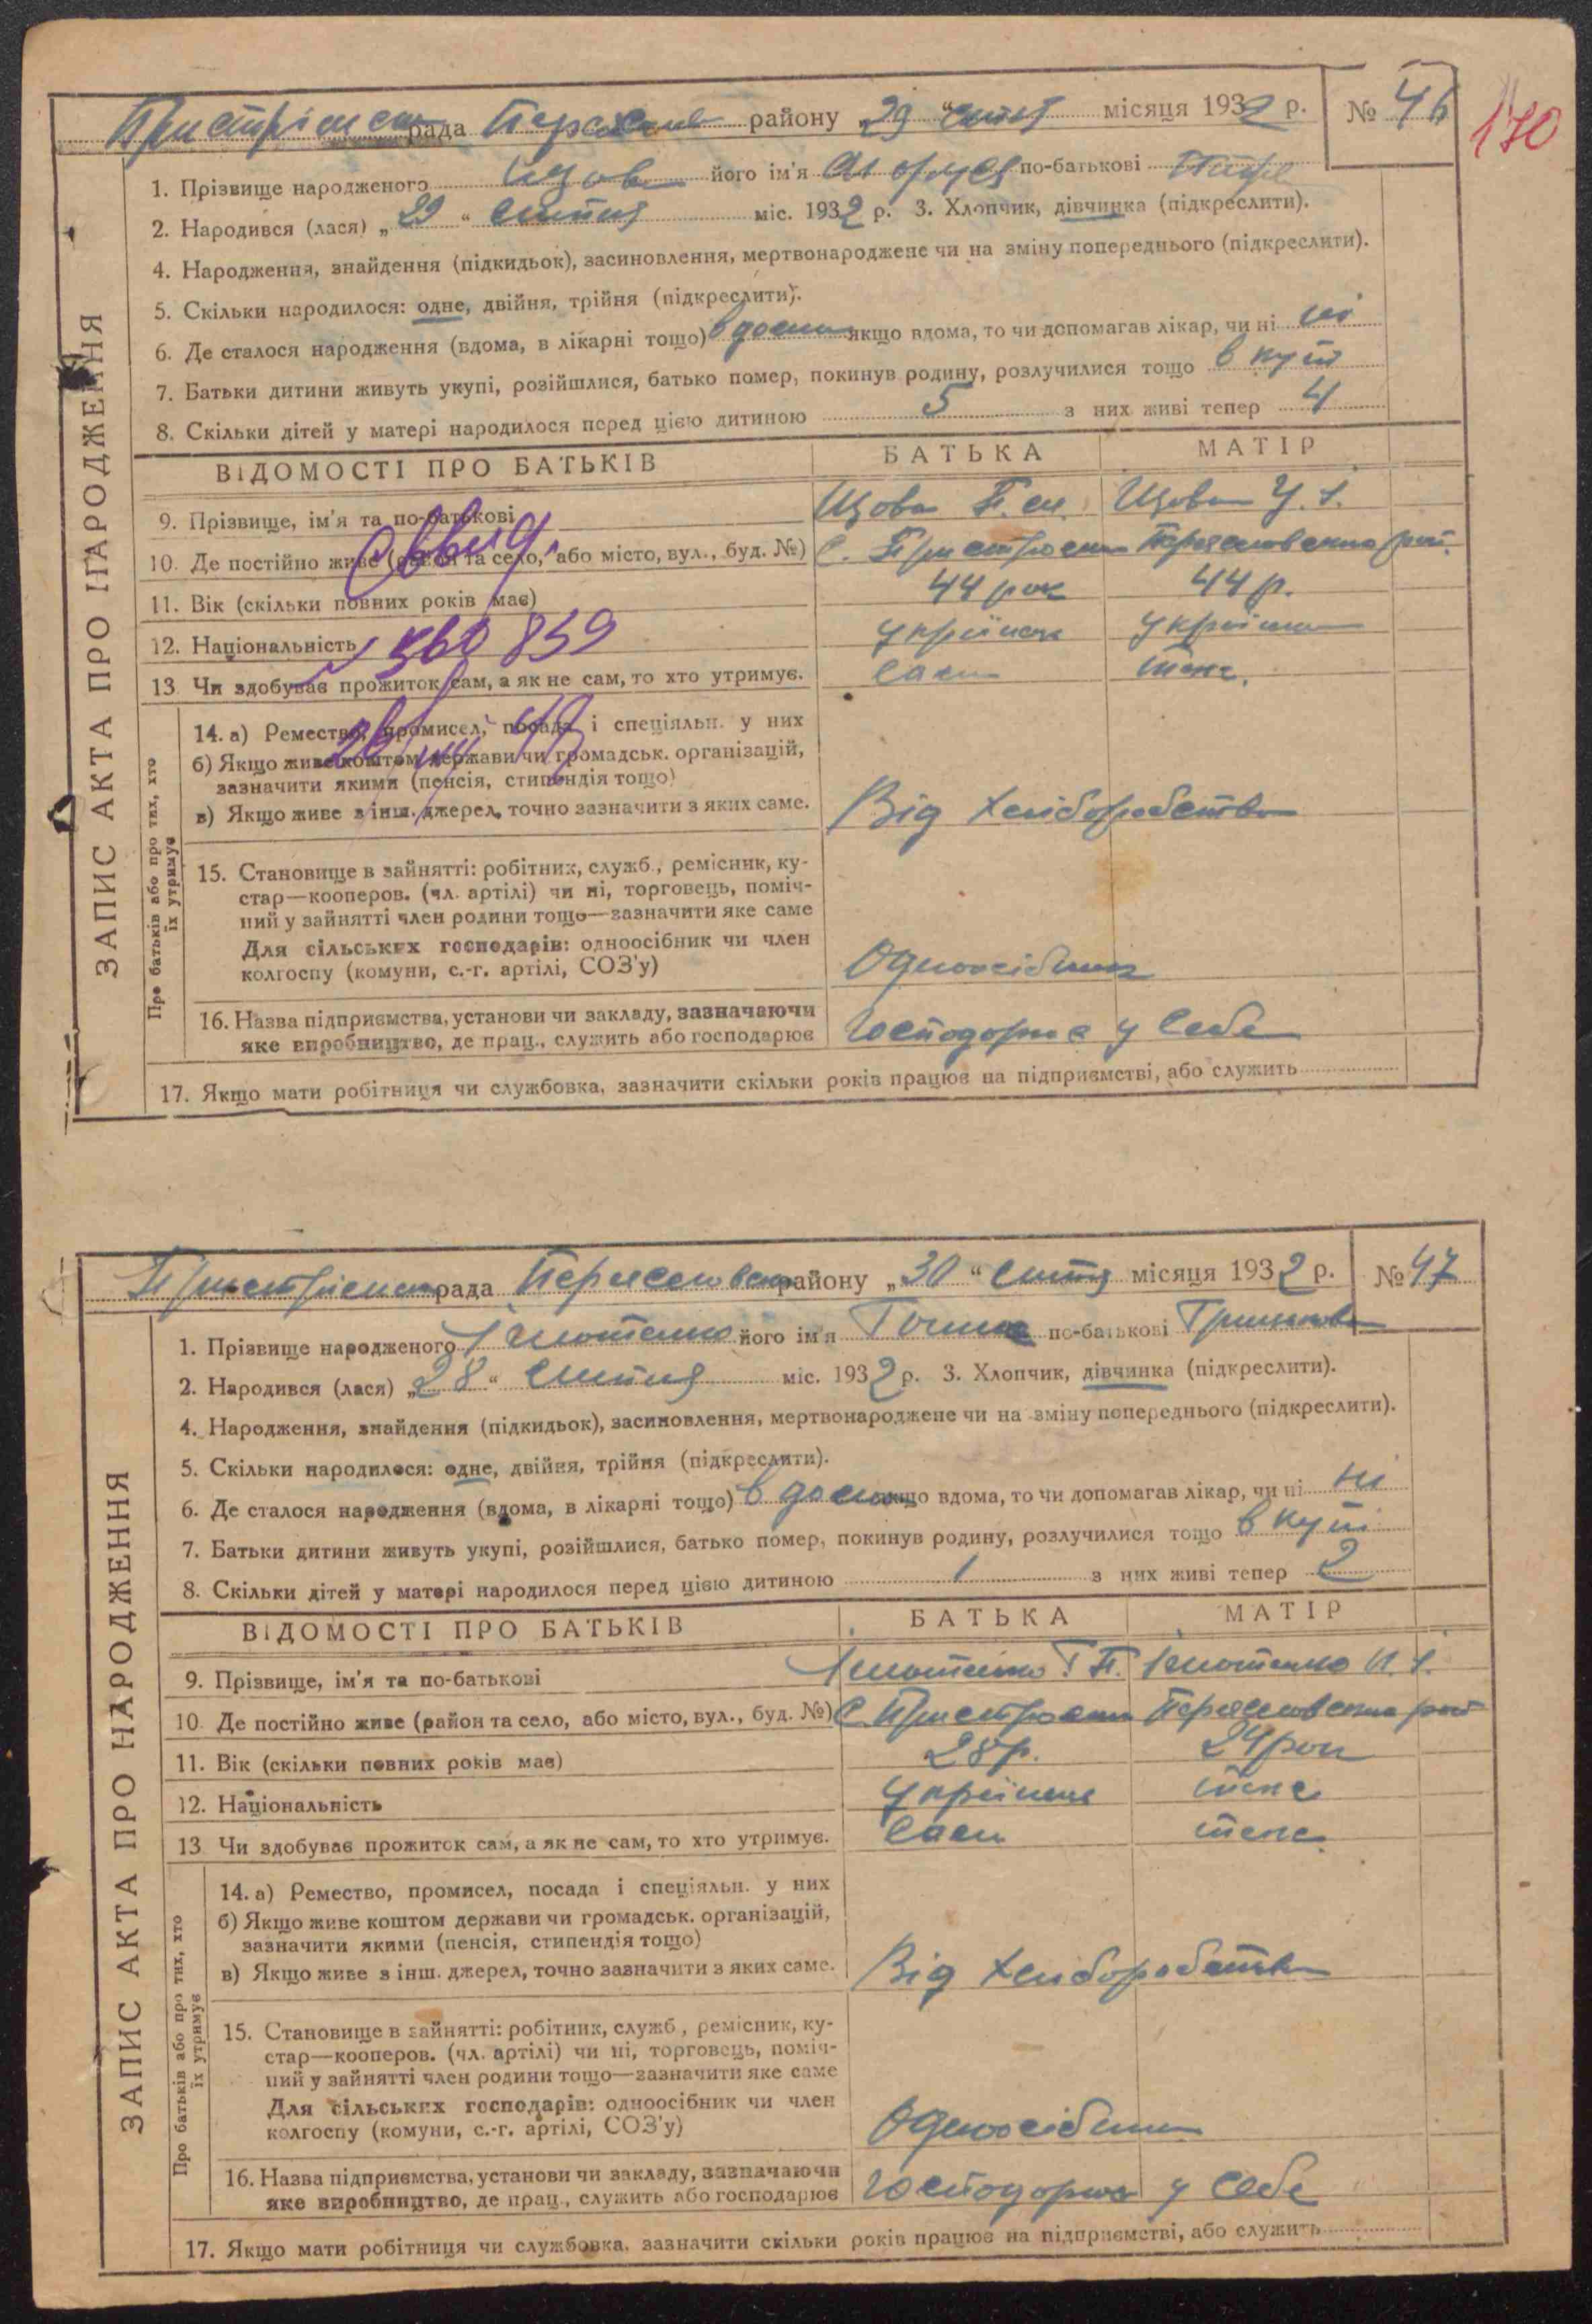 рада району „29“ місяця 1932 р. № 46
170
1. Прізвище народженого його ім'я по-батькові
2. Народився (лася) „29“ липня міс. 1932 р. 3. Хлопчик, дівчинка (підкреслити).
4. Народження, знайдення (підкидьок), засиновлення, мертвонароджене чи на зміну попереднього (підкреслити).
5. Скільки народилося: одне, двійня, трійня (підкреслити).
6. Де сталося народження (вдома, в лікарні тощо) в дома якщо вдома, то чи допомагав лікар, чи ні ні
7. Батьки дитини живуть укупі, розійшлися, батько помер, покинув родину, розлучилися тощо в купі
8. Скільки дітей у матері народилося перед цією дитиною 5 з них живі тепер 4
ЗАПИС АКТА ПРО НАРОДЖЕННЯ
ВІДОМОСТІ ПРО БАТЬКІВ БАТЬКА МАТІР
9. Прізвище, ім'я та по-батькові
10. Де постійно живе (район та село, або місто, вул., буд. №) с.
11. Вік (скільки повних років має) 44 рок 44 р.
12. Національність українець українка
13. Чи здобуває прожиток сам, а як не сам, то хто утримує. сам теж.
Про батьків або про тих, хто їх утримує
14. а) Ремество, промисел, посада і спеціяльн. у них
б) Якщо живе коштом держави чи громадськ. організацій,
зазначити якими (пенсія, стипендія тощо)
в) Якщо живе з інш. джерел, точно зазначити з яких саме. Від хліборобства
15. Становище в зайнятті: робітник, служб., ремісник, ку-
стар—кооперов. (чл. артілі) чи ні, торговець, поміч-
ний у зайнятті член родини тощо—зазначити яке саме
Для сільських господарів: одноосібник чи член
колгоспу (комуни, с.-г. артілі, СОЗ'у) Одноосібник
16. Назва підприємства, установи чи закладу, зазначаючи
яке виробництво, де прац., служить або господарює Господорює у себе
17. Якщо мати робітниця чи службовка, зазначити скільки років працює на підприємстві, або служить
рада району „30“ липня місяця 1932 р. № 47
1. Прізвище народженого його ім'я по-батькові
2. Народився (лася) „28“ липня міс. 1932 р. 3. Хлопчик, дівчинка (підкреслити).
4. Народження, знайдення (підкидьок), засиновлення, мертвонароджене чи на зміну попереднього (підкреслити).
5. Скільки народилося: одне, двійня, трійня (підкреслити).
6. Де сталося народження (вдома, в лікарні тощо) в дома якщо вдома, то чи допомагав лікар, чи ні ні
7. Батьки дитини живуть укупі, розійшлися, батько помер, покинув родину, розлучилися тощо в купі
8. Скільки дітей у матері народилося перед цією дитиною 1 з них живі тепер 2
ЗАПИС АКТА ПРО НАРОДЖЕННЯ
ВІДОМОСТІ ПРО БАТЬКІВ БАТЬКА МАТІР
9. Прізвище, ім'я та по-батькові
10. Де постійно живе (район та село, або місто, вул., буд. №) с.
11. Вік (скільки повних років має) 28 р. 24 рок
12. Національність українець теж
13. Чи здобуває прожиток сам, а як не сам, то хто утримує. сам теж
Про батьків або про тих, хто їх утримує
14. а) Ремество, промисел, посада і спеціяльн. у них
б) Якщо живе коштом держави чи громадськ. організацій,
зазначити якими (пенсія, стипендія тощо)
в) Якщо живе з інш. джерел, точно зазначити з яких саме. Від хліборобства
15. Становище в зайнятті: робітник, служб., ремісник, ку-
стар—кооперов. (чл. артілі) чи ні, торговець, поміч-
ний у зайнятті член родини тощо—зазначити яке саме
Для сільських господарів: одноосібник чи член
колгоспу (комуни, с.-г. артілі, СОЗ'у) Одноосібник
16. Назва підприємства, установи чи закладу, зазначаючи
яке виробництво, де прац., служить або господарює Господорює у себе
17. Якщо мати робітниця чи службовка, зазначити скільки років працює на підприємстві, або служить